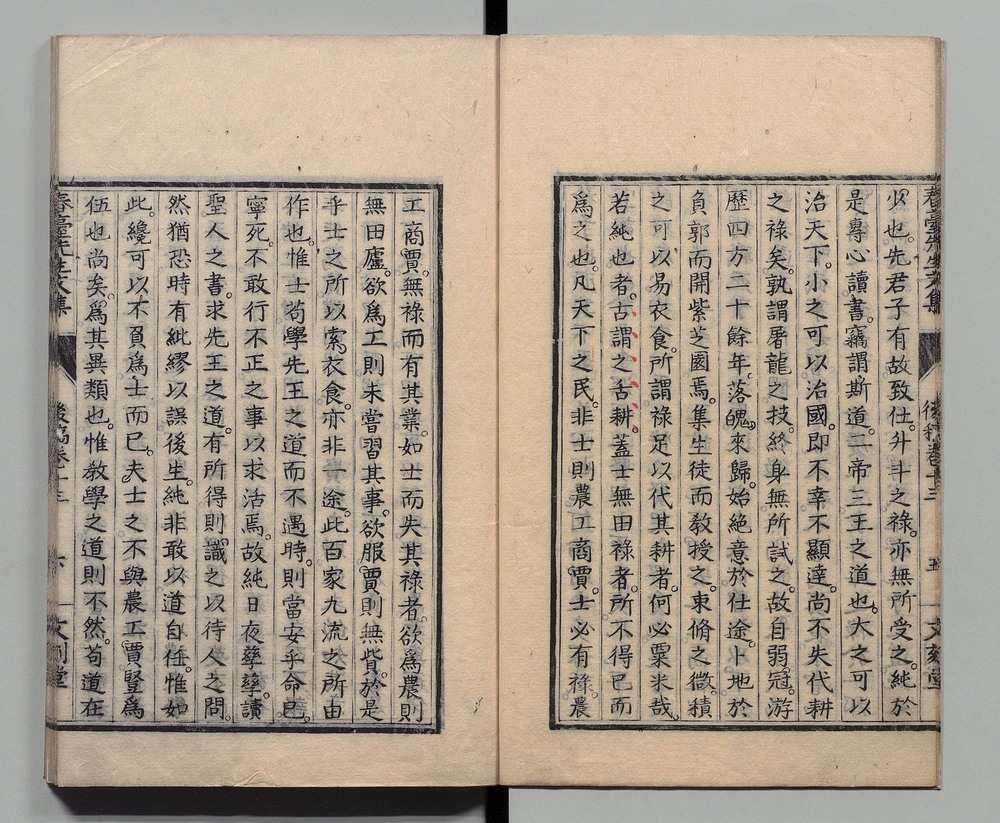 春臺先生文集 後稿卷十三 五 文刻堂
少也。先君子有故致仕。升斗之祿。亦無所受之。純於
是專心讀書。竊謂斯道。二帝三王之道也。大之可以
治天下。小之可以治國。即不幸不顯達。尚不失代耕
之祿矣。孰謂屠龍之技。終身無所試之。故自弱冠。游
歷四方二十餘年。落魄來歸。始絕意於仕途。卜地於
負郭而開紫芝園焉。集生徒而教授之。束脩之微。積
之可以易衣食。所謂祿足以代其耕者。何必粟米哉。
若純也者。古謂之舌耕。蓋士無田祿者。所不得已而
爲之也。凡天下之民。非士則農工商賈。士必有祿。農
工商賈。無祿而有其業。如士而失其祿者。欲爲農則
無田廬。欲爲工則未嘗習其事。欲服賈則無貲。於是
乎士之所以索衣食。亦非一途。此百家九流之所由
作也。惟士苟學先王之道而不遇時。則當安乎命已。
寧死。不敢行不正之事以求活焉。故純日夜孳孳。讀
聖人之書。求先王之道。有所得則識之。以待人之問。
然猶恐時有紕繆以誤後生。純非敢以道自任。惟如
此。纔可以不負爲士而已。夫士之不與農工賈豎爲
伍也尚矣。爲其異類也。惟教學之道則不然。苟道在
春臺先生文集 後稿卷十三 六 文刻堂